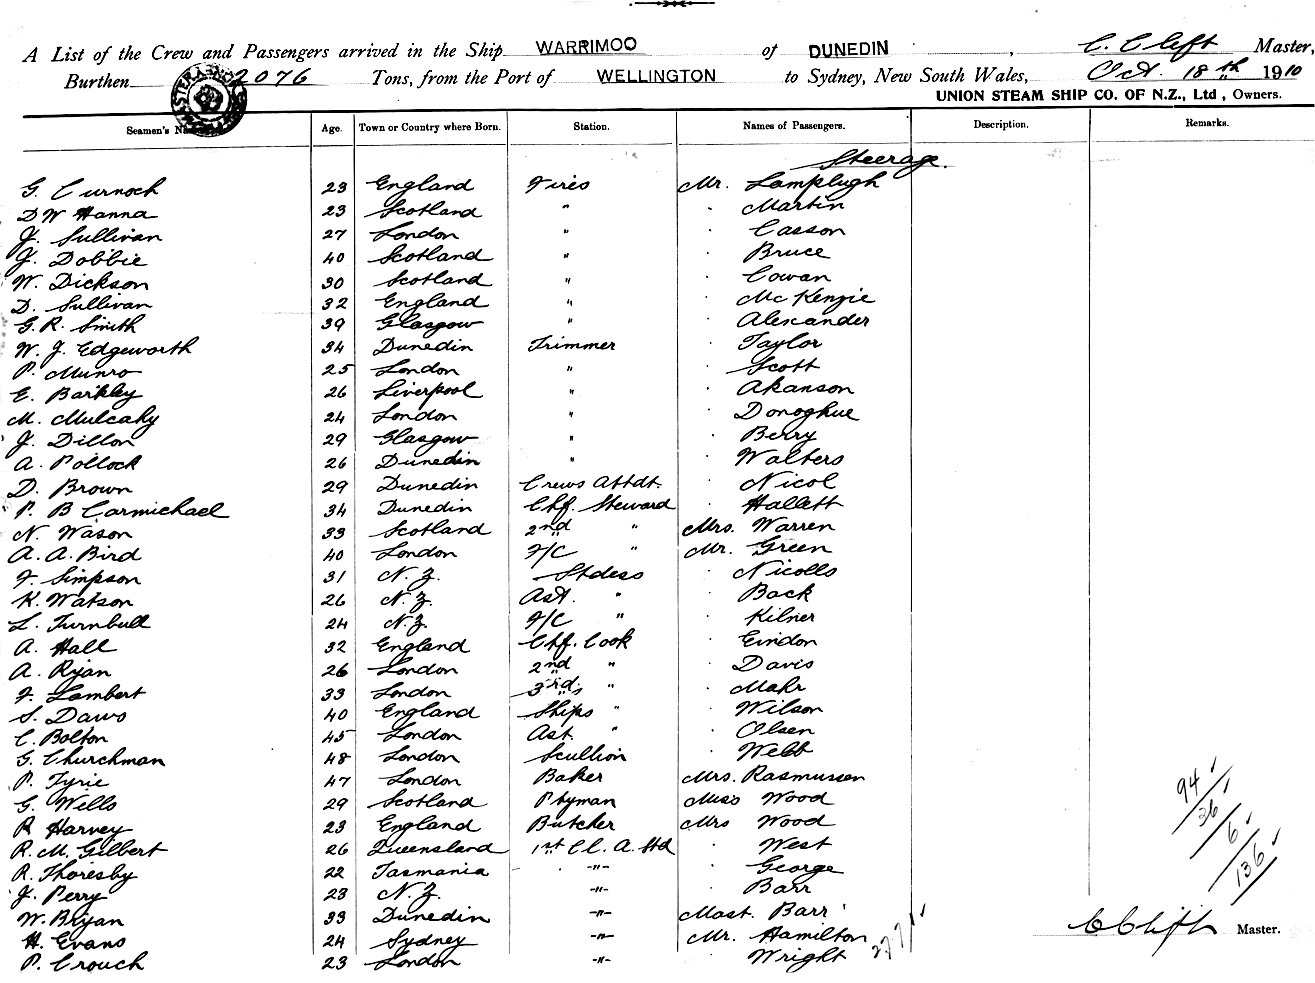 A List of the Crew and Passengers arrived in the Ship WARRIMOO of DUNEDIN, C. Clift Master,
Burthen 2076 Tons, from the Port of WELLINGTON to Sydney, New South Wales, Oct. 18th 1910
UNION STEAM SHIP CO. OF N.Z., Ltd, Owners.
Seamen's Age. Town or Country where Born. Station. Names of Passengers. Description. Remarks.
Steerage.
G. Curnock 23 England Fires Mr. Lamplugh
D W Hanna 23 Scotland " . Martin
J. Sullivan 27 London " . Casson
J. Dobbie 40 Scotland " . Bruce
W. Dickson 30 Scotland " . Cowan
D. Sullivan 32 England " . McKenzie
G. R. Smith 39 Glasgow " . Alexander
W. J. Edgeworth 34 Dunedin Trimmer . Taylor
P. Munro 25 London " . Scott
E. Barkley 26 Liverpool " . Akanson
M. Mulcahy 24 London " . Donoghue
J. Dillon 29 Glasgow " . Berry
A. Pollock 26 Dunedin " . Walters
D. Brown 29 Dunedin Crews Attdt. . Nicol
P. B Carmichael 34 Dunedin Chf. Steward . Hallett
N. Wason 33 Scotland 2nd " Mrs. Warren
A. A. Bird 40 London F/C " Mr. Green
F. Simpson 31 N. Z. Stdess . Nicolls
K. Watson 26 N. Z. Ast. " . Back
L. Turnbull 24 N.Z. F/C " . Kilner
A. Hall 32 England Chf. Cook .
A. Ryan 26 London 2nd " . Davis
F. Lambert 33 London 3rd " . Mahr
S. Daws 40 England Ships " . Wilson
C. Bolton 45 London Ast. " . Olsen
G. Churchman 48 London Scullion . Webb
P. Fyrie 47 London Baker Mrs. Rasmussen
G. Wells 29 Scotland Ptyman Miss Wood
R Harvey 23 England Butcher Mrs Wood
R. M. Gilbert 26 Queensland 1st Cl. A. Std . West
R. Thoresby 22 Tasmania -"- . George
J. Perry 23 N. Z. -"- . Barr
W. Bryan 33 Dunedin -"- Mast. Barr
H. Evans 24 Sydney -"- Mr. Hamilton
P. Crouch 23 London -"- . Wright
94
36
6
136
C Clift Master.